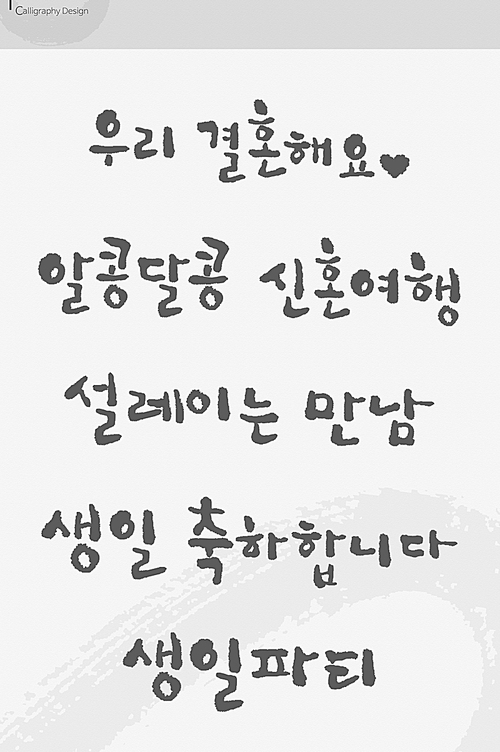 Calligraphy Design
우리 결혼해요♥
알콩달콩 신혼여행
설레이는 만남
생일 축하합니다
생일파티